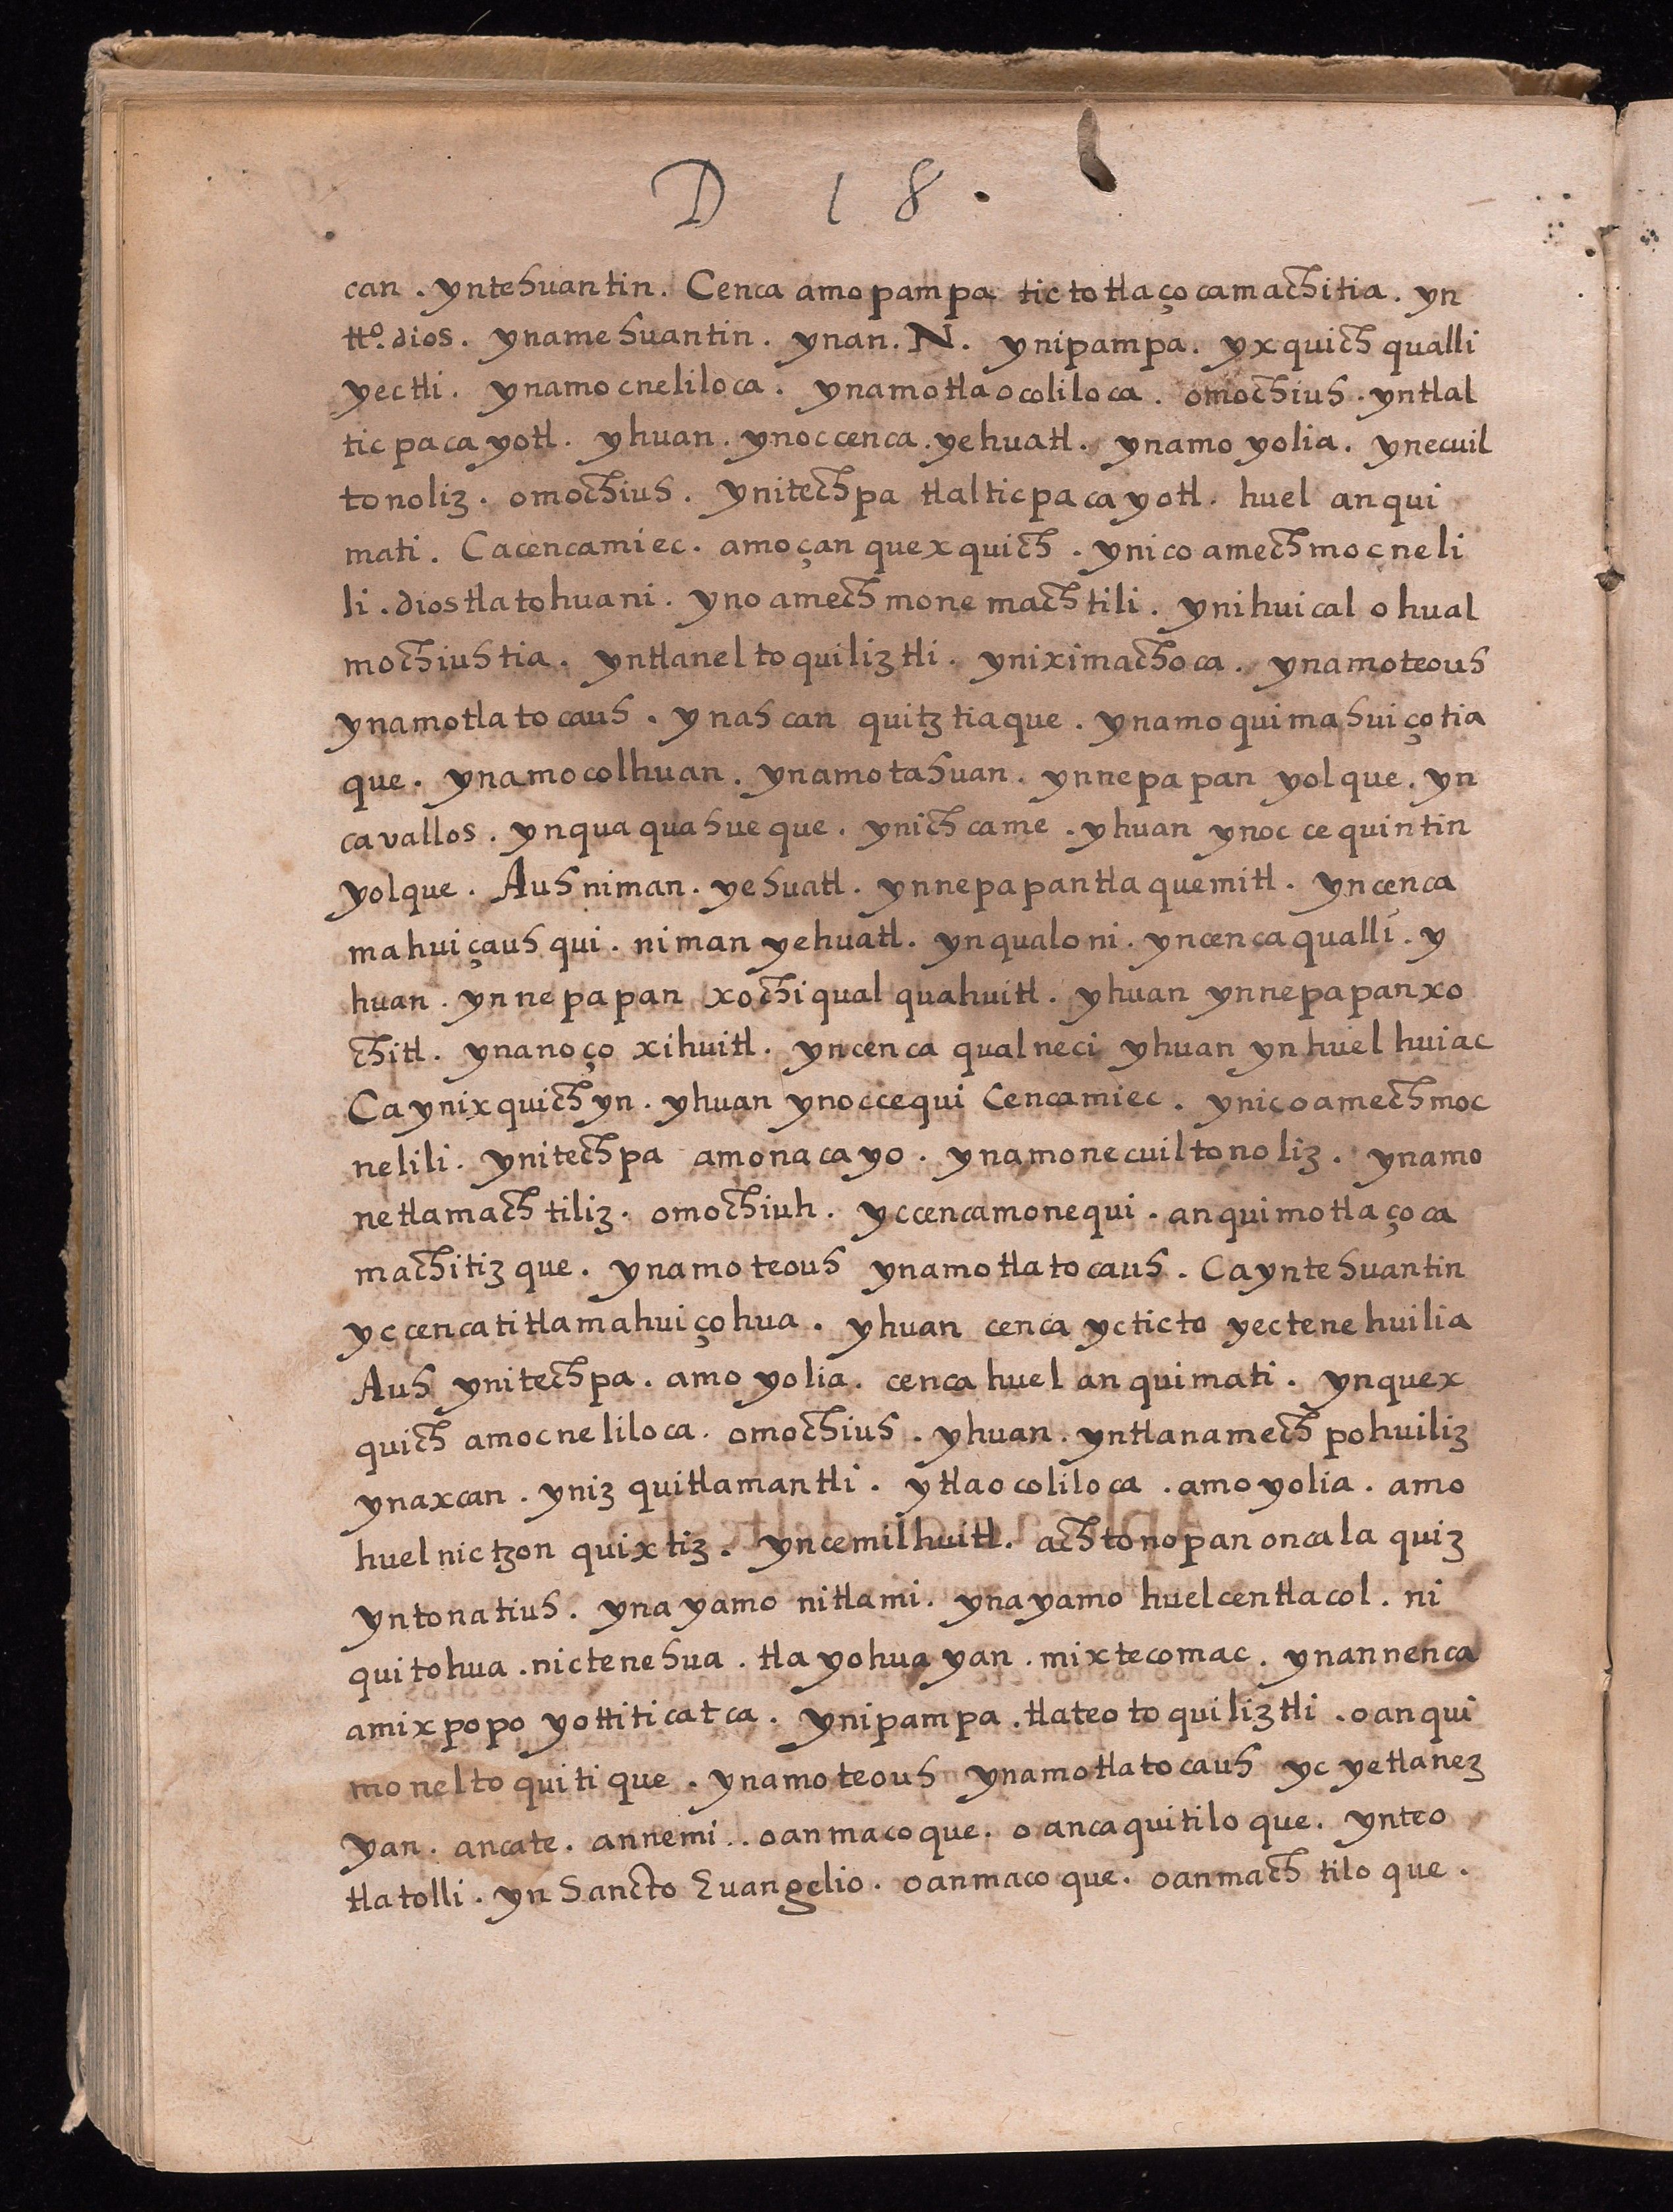 D 18.
can . yntehuantin. Cenca amopampa tictotlaçocamachitia. yn
tto. dios. ynamehuantin. ynan. N. ynipampa. yxquich qualli
yectli. ynamocneliloca. ynamotlaocoliloca. omochiuh. yntlal
ticpacayotl. yhuan. ynoccenca. yehuatl. ynamo yolia. ynecuil
tonoliz. omochiuh. ynitechpa tlalticpacayotl. huel anqui
mati. Cacencamiec. amoçan quexquich. ynicoamechmocneli
li. diostlatohuani. ynoamechmonemachtili. ynihuical ohual
mochiuhtia. yntlaneltoquiliztli. yniximachoca. ynamoteouh
ynamotlatocauh. ynahcan quitztiaque. ynamoquimahuiçotia
que. ynamocolhuan. ynamotahuan. ynnepapan yolque. yn
cavallos. ynquaquahueque. ynichcame. yhuan ynoc cequintin
yolque. Auhniman. yehuatl. ynnepapantlaquemitl. yncenca
mahuiçauhqui. niman yehuatl. ynqualoni. yncencaqualli. y
huan. ynnepapan xochiqualquahuitl. yhuan ynnepapanxo
chitl. ynanoço xihuitl. yncenca qualneci yhuan ynhuelhuiac
Caynixquichyn. yhuan ynoccequi Cencamiec. ynicoamechmoc
nelili. ynitechpa amonacayo. ynamonecuiltonoliz. ynamo
netlamachtiliz. omochiuh. yccencamonequi. anquimotlaçoca
machitizque. ynamoteouh ynamotlatocauh. Cayntehuantin
yccencatitlamahuiçohua. yhuan cenca ycticto yectenehuilia
Auh ynitechpa. amo yolia. cenca huel anquimati. ynquex
quich amocneliloca. omochiuh. yhuan. yntlanamechpohuiliz
ynaxcan. yniz quitlamantli. ytlaocoliloca. amoyolia. amo
huelnictzon quixtiz. yncemilhuitl. achtonopan oncalaquiz
yntonatiuh. ynayamo nitlami. ynayamo huelcentlacol. ni
quitohua. nictenehua. tlayohuayan. mixtecomac. ynannenca
amixpopoyottiticatca. ynipampa. tlateotoquiliztli. oanqui
moneltoquitique. ynamoteouh ynamotlatocauh yc yetlanez
yan. ancate. annemi.. oanmacoque. oancaquitiloque. ynteo
tlatolli. yn Sancto Euangelio. oanmacoque. oanmachtiloque.